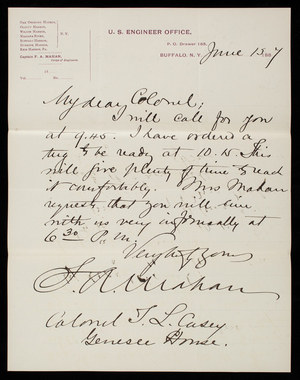 U. S. ENGINEER OFFICE,
P. O. Drawer
BUFFALO, N. Y. June 15 1887
Captain F. A. MAHAN,
Corps of Engineers.
My dear Colonel;
I will call for you
at 9.45. I have ordered a
tug to be ready at 10. This
will give plenty of time to
it comfortably. Mrs Mahan
requests that you will dine
with us very informally at
6 30 P.M.
Very truly yours
F. A. Mahan
Colonel T. L. Casey
Genesee House.